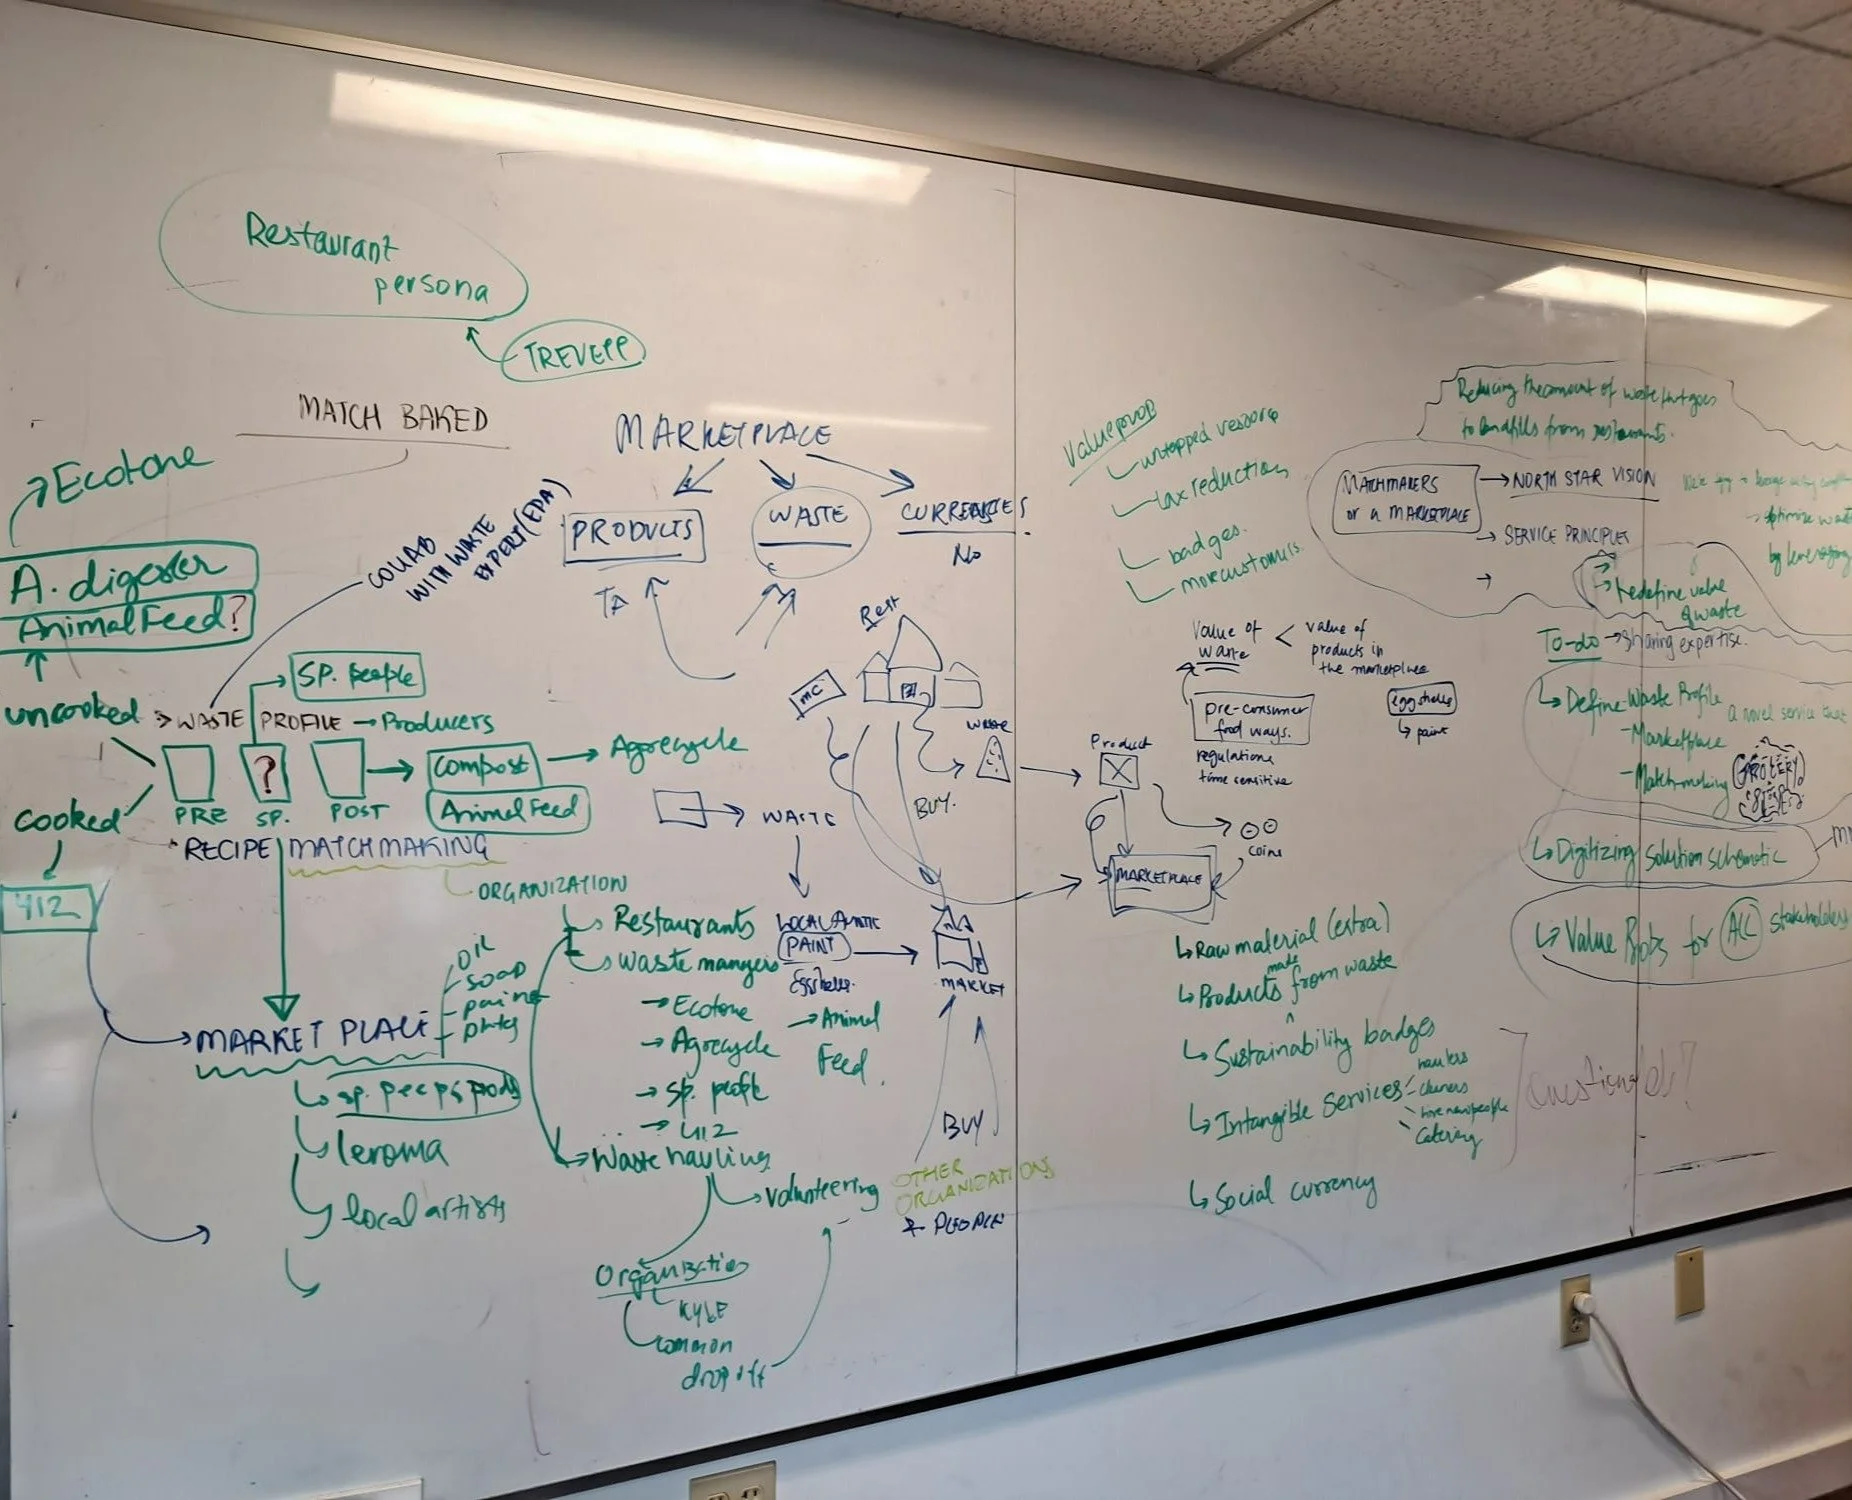 Restaurant
persona
TREVEPP
MATCH BAKED
Ecotone
A. digester
Animal Feed?
COLLAB
WITH WASTE
EXPERT (EPA)
SP. people
uncooked
WASTE PROFILE → Producers
?
compost
Agrecycle
Animal Feed
cooked
PRE
SP.
POST
RECIPE MATCHMAKING
412
ORGANIZATION
Restaurants
Waste mangers
→ Ecotone
→ Agrecycle
→ Sp. people
→ 412
→ Animal
Feed.
Waste hauling
volunteering
Organization
KYLE
common
drop off
MARKET PLACE
OIL
SOAP
paint
sp. peeps prods
leroma
local artists
MARKETPLACE
PRODUCTS
WASTE
CURRENCIES
No
Rest
mc
WASTE
BUY.
WASTE
PAINT
Eggshells.
MARKET
BUY
OTHER
ORGANIZATIONS
+ PEOPLE
Value prop
untapped resource
tax reduction
badges.
more customers.
Value of
waste
<
value of
products in
the marketplace
pre-consumer
food ways.
regulations
time sensitive
egg shells
↳ paint
Product
coins
MARKETPLACE
↳ Raw material (extra)
↳ Products made from waste
↳ Sustainability badges
↳ Intangible Services
haulers
cleaners
hire new people
Catering
↳ Social currency
Questionable?
Reducing the amount of waste that goes
to landfills from restaurants.
MATCHMAKERS
or a MARKETPLACE
→ NORTH STAR VISION
→ SERVICE PRINCIPLES
→ redefine value
of waste
→ optimize waste
by leveraging
To-do → sharing expertise.
↳ Define Waste Profile
a novel service that
- Marketplace
- Match-making
↳ Digitizing solution schematic
↳ Value Props for ALL stakeholders